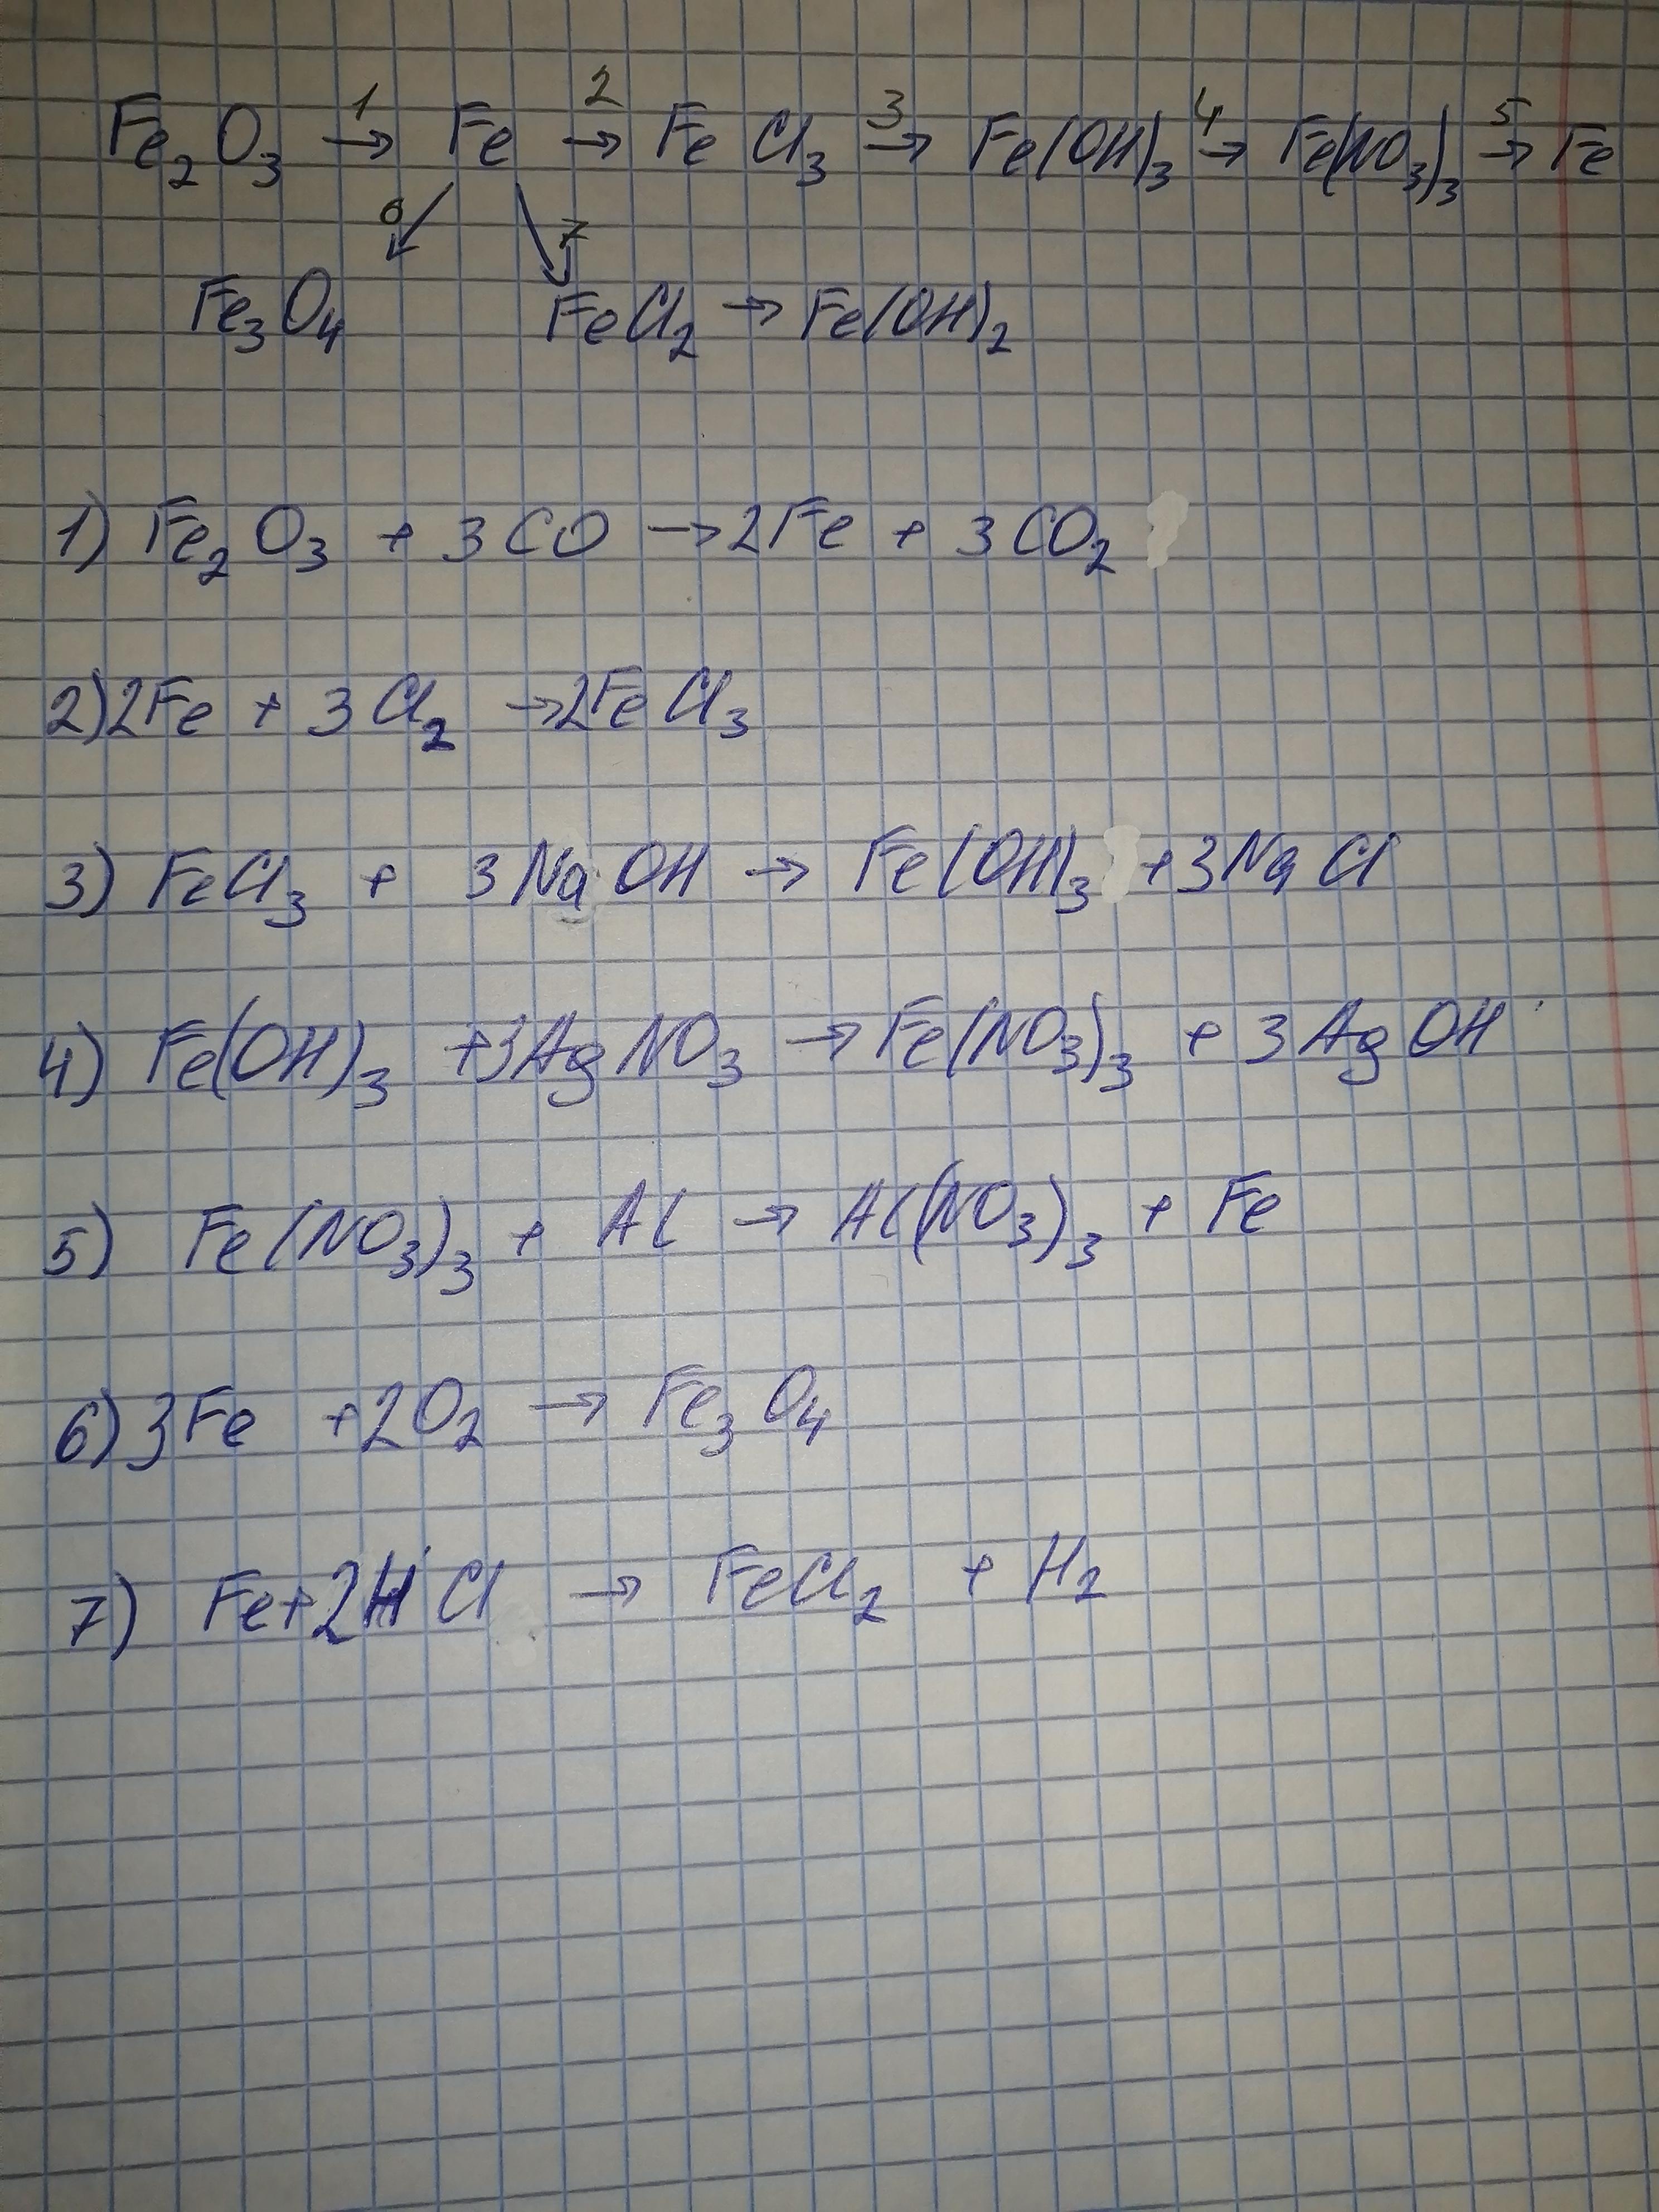 Fe₂O₃ →¹ Fe →² FeCl₃ →³ Fe(OH)₃ →⁴ Fe(NO₃)₃ →⁵ Fe
6 ↙ ↘ 7
Fe₃O₄ FeCl₂ → Fe(OH)₂
1) Fe₂O₃ + 3CO → 2Fe + 3CO₂
2) 2Fe + 3Cl₂ → 2FeCl₃
3) FeCl₃ + 3NaOH → Fe(OH)₃ + 3NaCl
4) Fe(OH)₃ + 3AgNO₃ → Fe(NO₃)₃ + 3AgOH
5) Fe(NO₃)₃ + Al → Al(NO₃)₃ + Fe
6) 3Fe + 2O₂ → Fe₃O₄
7) Fe + 2HCl → FeCl₂ + H₂